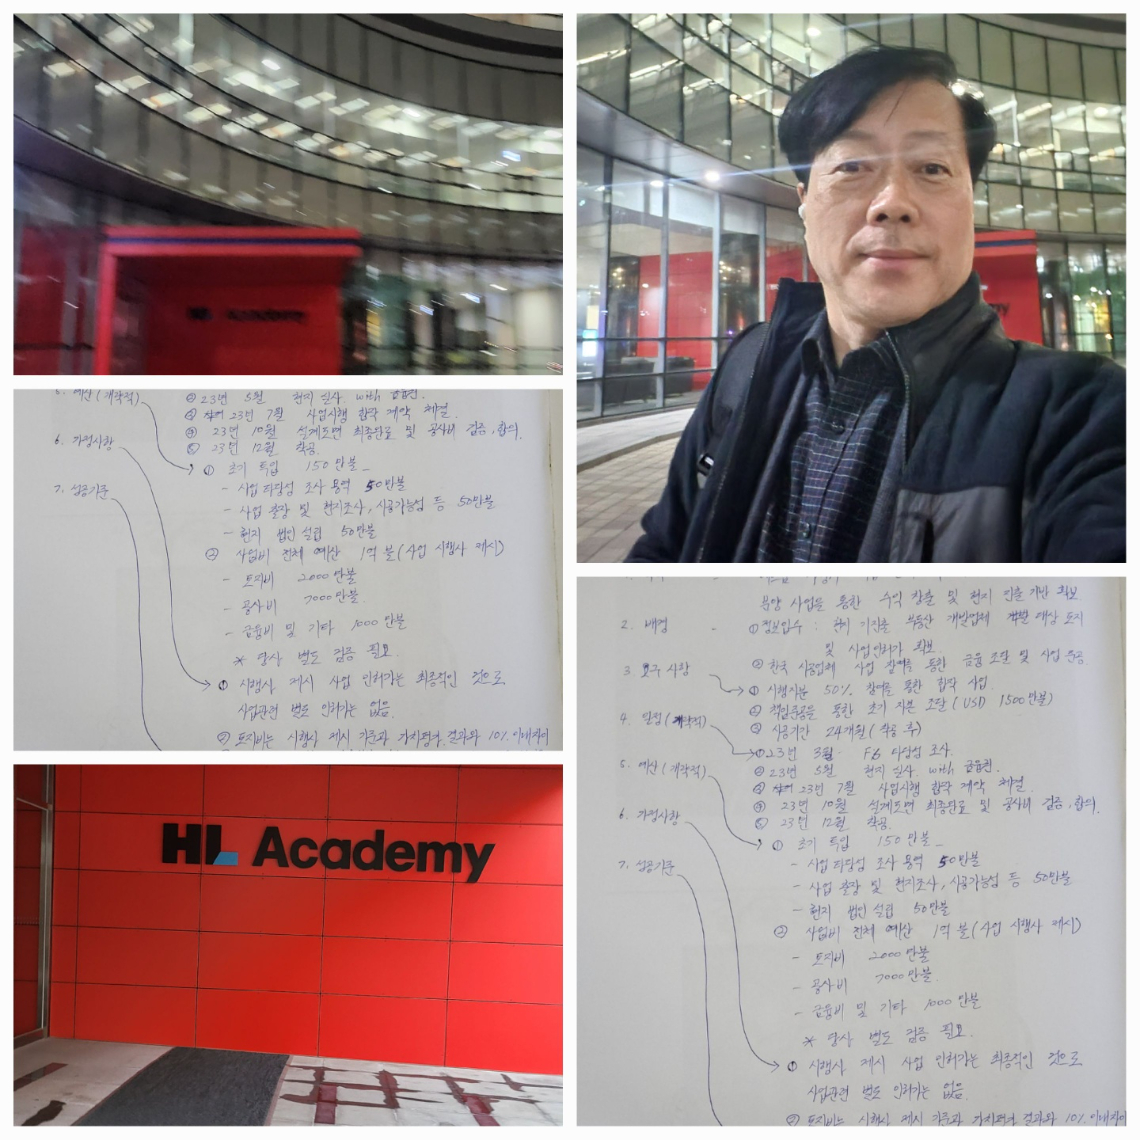 HL Academy
Academy
5. 예산(개략적)
6. 가정사항
7. 성공기준
② 23년 5월 현지 실사. with 금융권.
③ 23년 7월 사업시행 합작 계약 체결.
④ 23년 10월 설계도면 최종완료 및 공사비 검증, 합의.
⑤ 23년 12월 착공.
① 초기 투입 150만불
- 사업 타당성 조사 용역 50만불
- 사업 출장 및 현지조사, 시공가능성 등 50만불
- 현지 법인 설립 50만불
② 사업비 전체 예산 1억불(사업 시행사 제시)
- 토지비 2000만불
- 공사비 7000만불.
- 금융비 및 기타 1000만불
* 당사 별도 검증 필요.
① 시행사 제시 사업 인허가는 최종적인 것으로
사업관련 별도 인허가는 없음.
② 토지비는 시행사 제시 기준과 가치평가 결과와 10% 이내
HL Academy
분양 사업을 통한 수익 창출 및 현지 진출 기반 확보.
2. 배경 - ① 정보입수 : 현지 기진출 부동산 개발업체 개발 대상 토지
및 사업인허가 확보.
② 한국 시공업체 사업 참여를 통한 금융 조달 및 사업 준공
3. 요구 사항
① 시행지분 50% 참여를 통한 합작 사업.
② 책임준공을 통한 초기 자본 조달(USD 1500만불)
③ 시공기간 24개월(착공 후)
4. 일정(개략적)
① 23년 3월. F/S 타당성 조사.
5. 예산(개략적)
② 23년 5월 현지 실사. with 금융권.
③ 23년 7월 사업시행 합작 계약 체결.
④ 23년 10월 설계도면 최종완료 및 공사비 검증, 합의.
⑤ 23년 12월 착공.
6. 가정사항
① 초기 투입 150만불
7. 성공기준
- 사업 타당성 조사 용역 50만불
- 사업 출장 및 현지조사, 시공가능성 등 50만불
- 현지 법인 설립 50만불
② 사업비 전체 예산 1억불(사업 시행사 제시)
- 토지비 2000만불
- 공사비 7000만불.
- 금융비 및 기타 1000만불
* 당사 별도 검증 필요.
① 시행사 제시 사업 인허가는 최종적인 것으로
사업관련 별도 인허가는 없음.
② 토지비는 시행사 제시 기준과 가치평가 결과와 10% 이내